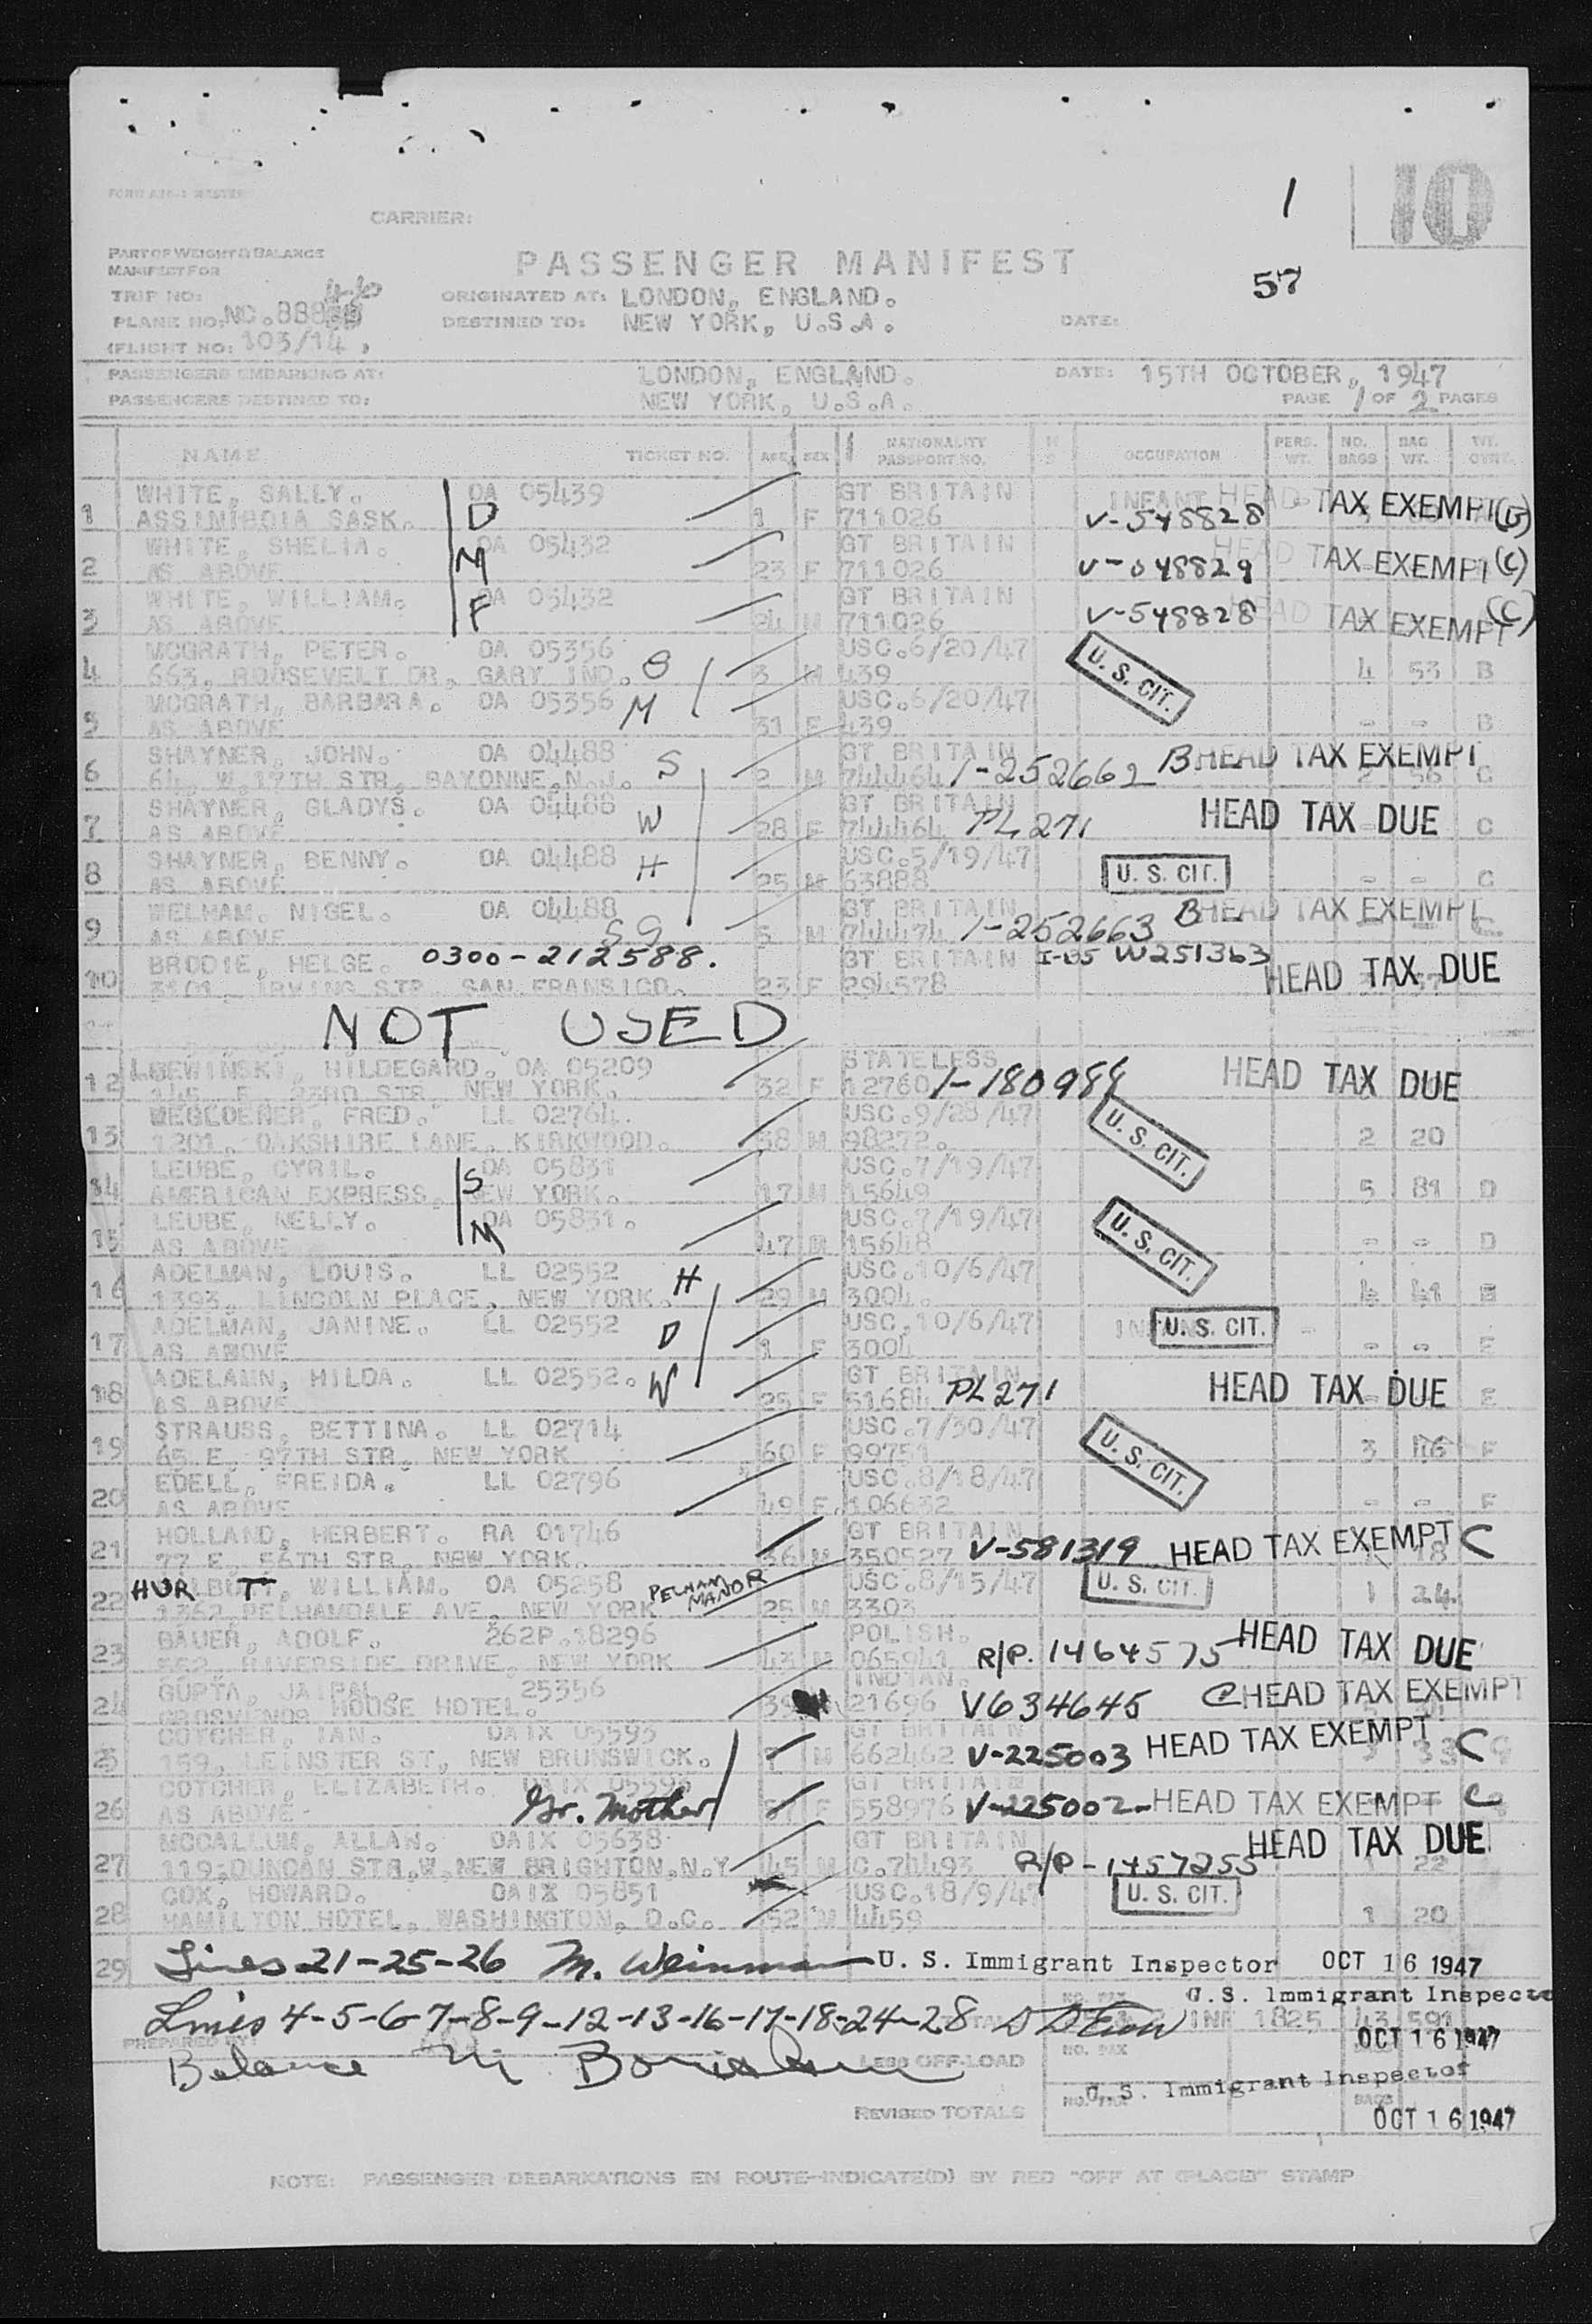 FORM
1
10
CARRIER:
PART OF WEIGHT & BALANCE
MANIFEST FOR
PASSENGER MANIFEST
57
TRIP NO:
ORIGINATED AT: LONDON, ENGLAND.
PLANE NO: NC.888
DESTINED TO: NEW YORK, U.S.A.
DATE:
(FLIGHT NO: 103/14 )
PASSENGERS EMBARKING AT: LONDON, ENGLAND. DATE: 15TH OCTOBER, 1947
PASSENGERS DESTINED TO: NEW YORK, U.S.A. PAGE 1 OF 2 PAGES
NAME TICKET NO. AGE SEX NATIONALITY PASSPORT NO. OCCUPATION PERS. WT. NO. BAGS BAG WT.
WHITE, SALLY. OA 05439 GT BRITAIN INFANT HEAD TAX EXEMPT (B)
1 ASSINIBOIA SASK. D 1 F 711026 V-548828
WHITE, SHELIA. OA 05432 GT BRITAIN HEAD TAX EXEMPT (C)
2 AS ABOVE M 23 F 711026 V-048829
WHITE, WILLIAM. OA 05432 GT BRITAIN HEAD TAX EXEMPT (C)
3 AS ABOVE F 24 M 711026 V-548828
MCGRATH, PETER. OA 05356 USC.6/20/47 U. S. CIT.
4 663, ROOSEVELT DR, GARY IND. S 3 M 439 4 53 B
MCGRATH, BARBARA. OA 05356 M USC.6/20/47
5 AS ABOVE 31 F 439 - - B
SHAYNER, JOHN. OA 04488 S GT BRITAIN B HEAD TAX EXEMPT
6 64, W.17TH STR, BAYONNE, N.J. 2 M 744464 1-252662 2 56 C
SHAYNER, GLADYS. OA 04488 W GT BRITAIN HEAD TAX DUE
7 AS ABOVE 28 F 744464 PL 271 C
SHAYNER, BENNY. OA 04488 H USC.5/19/47 U. S. CIT.
8 AS ABOVE 25 M 63888 - - C
WELHAM. NIGEL. OA 04488 GT BRITAIN B HEAD TAX EXEMPT
9 AS ABOVE 5 M 744474 1-252663
BRODIE, HELGE. 0300-212588. GT BRITAIN W251363 HEAD TAX DUE
10 3101, IRVING STR. SAN FRANSICO. 23 F 294578
NOT USED
LOEWINSKI, HILDEGARD. OA 05209 STATELESS HEAD TAX DUE
12 NEW YORK. 32 F 12760 1-180988
FRED. LL 02764. USC.9/23/47 U. S. CIT.
13 1201, OAKSHIRE LANE, KIRKWOOD. 38 M 98272. 2 20
LEUBE, CYRIL. OA 05831 USC.7/19/47
14 AMERICAN EXPRESS, NEW YORK. S 17 M 15649 5 81 D
LEUBE, NELLY. OA 05831. USC.7/19/47 U. S. CIT.
15 AS ABOVE M 47 M 15648 - - D
ADELMAN, LOUIS. LL 02552 H USC.10/6/47
16 1393, LINCOLN PLACE, NEW YORK. 29 M 3004. 4 41 E
ADELMAN, JANINE. LL 02552 D USC.10/6/47 U. S. CIT.
17 AS ABOVE 1 F 3004 - - E
ADELAMN, HILDA. LL 02552. W GT BRITAIN HEAD TAX DUE
18 AS ABOVE 25 F 51684 PL 271 E
STRAUSS, BETTINA. LL 02714 USC.7/30/47 U. S. CIT.
19 65 E. 97TH STR, NEW YORK 60 F 99751 3 F
EDELL, FREIDA. LL 02796 USC.8/18/47
20 AS ABOVE 49 F. 106632 - - F
HOLLAND, HERBERT. RA 01746 GT BRITAIN HEAD TAX EXEMPT C
21 77 E. 56TH STR, NEW YORK. 36 M 350527 V-581319
HUR T WILLIAM. OA 05258 PELHAM MANOR USC.8/15/47 U. S. CIT.
22 1362, PELHAMDALE AVE, NEW YORK 25 M 3303 1 24.
BAUER, ADOLF. 262P.18296 POLISH. HEAD TAX DUE
23 552, RIVERSIDE DRIVE, NEW YORK 43 M 065941 R/P. 1464575
GUPTA, JAIPAL. 25356 INDIAN. C HEAD TAX EXEMPT
24 GROSVENOR HOUSE HOTEL. 21696 V634645
COTCHER, IAN. OAIX 05595 GT BRITAIN HEAD TAX EXEMPT C
25 159, LEINSTER ST, NEW BRUNSWICK. 7 M 662462 V-225003 33
COTCHER, ELIZABETH. OAIX 05596 GT BRITAIN HEAD TAX EXEMPT C
26 AS ABOVE Gr. Mother 57 F 558976 V-225002
MCCALLUM, ALLAN. OAIX 05638 GT BRITAIN HEAD TAX DUE
27 119, DUNCAN STR, W, NEW BRIGHTON, N.Y 45 M C.74493 R/P-1457255 1 22
COX, HOWARD. OAIX 05851 USC.18/9/47 U. S. CIT.
28 HAMILTON HOTEL, WASHINGTON, D.C. 52 M 4459 1 20
29 Lines 21-25-26 M. Weinman U. S. Immigrant Inspector OCT 16 1947
U.S. Immigrant Inspector
Lines 4-5-6-7-8-9-12-13-16-17-18-24-28 INF 1825 43 591
PREPARED BY OCT 16 1947
Balance LESS OFF-LOAD NO. PAX
U.S. Immigrant Inspector
REVISED TOTALS NO. PAX BAGS OCT 16 1947
NOTE: PASSENGER DEBARKATIONS EN ROUTE-INDICATE(D) BY RED "OFF AT (PLACE)" STAMP